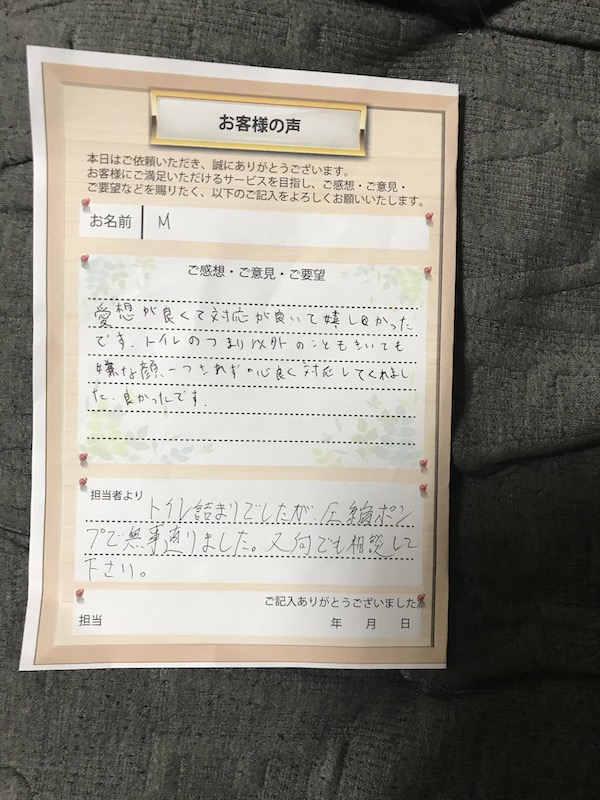 お客様の声
本日はご依頼いただき、誠にありがとうございます。
お客様にご満足いただけるサービスを目指し、ご感想・ご意見・
ご要望などを賜りたく、以下のご記入をよろしくお願いいたします。
お名前 M
ご感想・ご意見・ご要望
愛想が良くて対応が良いて嬉しかった
です。トイレのつまり以外のこともきいても
嫌な顔一つされず心良く対応してくれまし
た。良かったです。
担当者より
トイレ詰まりでしたが、圧縮ポン
プで無事直りました。又何でも相談して
下さい。
ご記入ありがとうございました。
担当 年 月 日